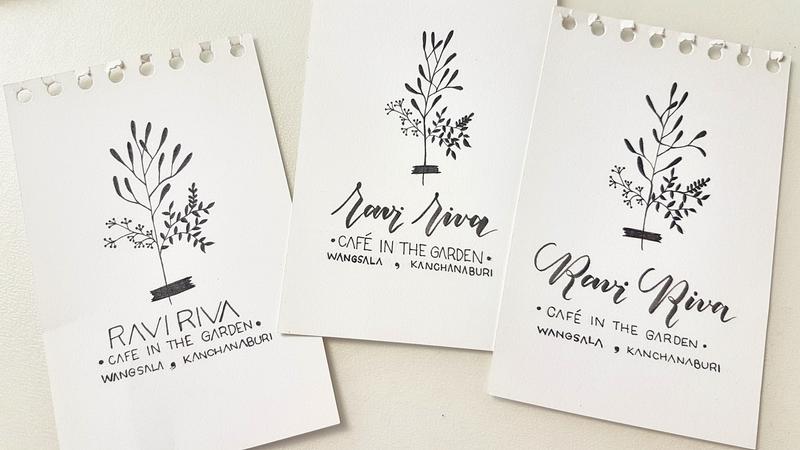 RAVI RIVA
• CAFE IN THE GARDEN •
WANGSALA , KANCHANABURI
ravi riva
• CAFÉ IN THE GARDEN •
WANGSALA , KANCHANABURI
Ravi Riva
• CAFÉ IN THE GARDEN •
WANGSALA , KANCHANABURI